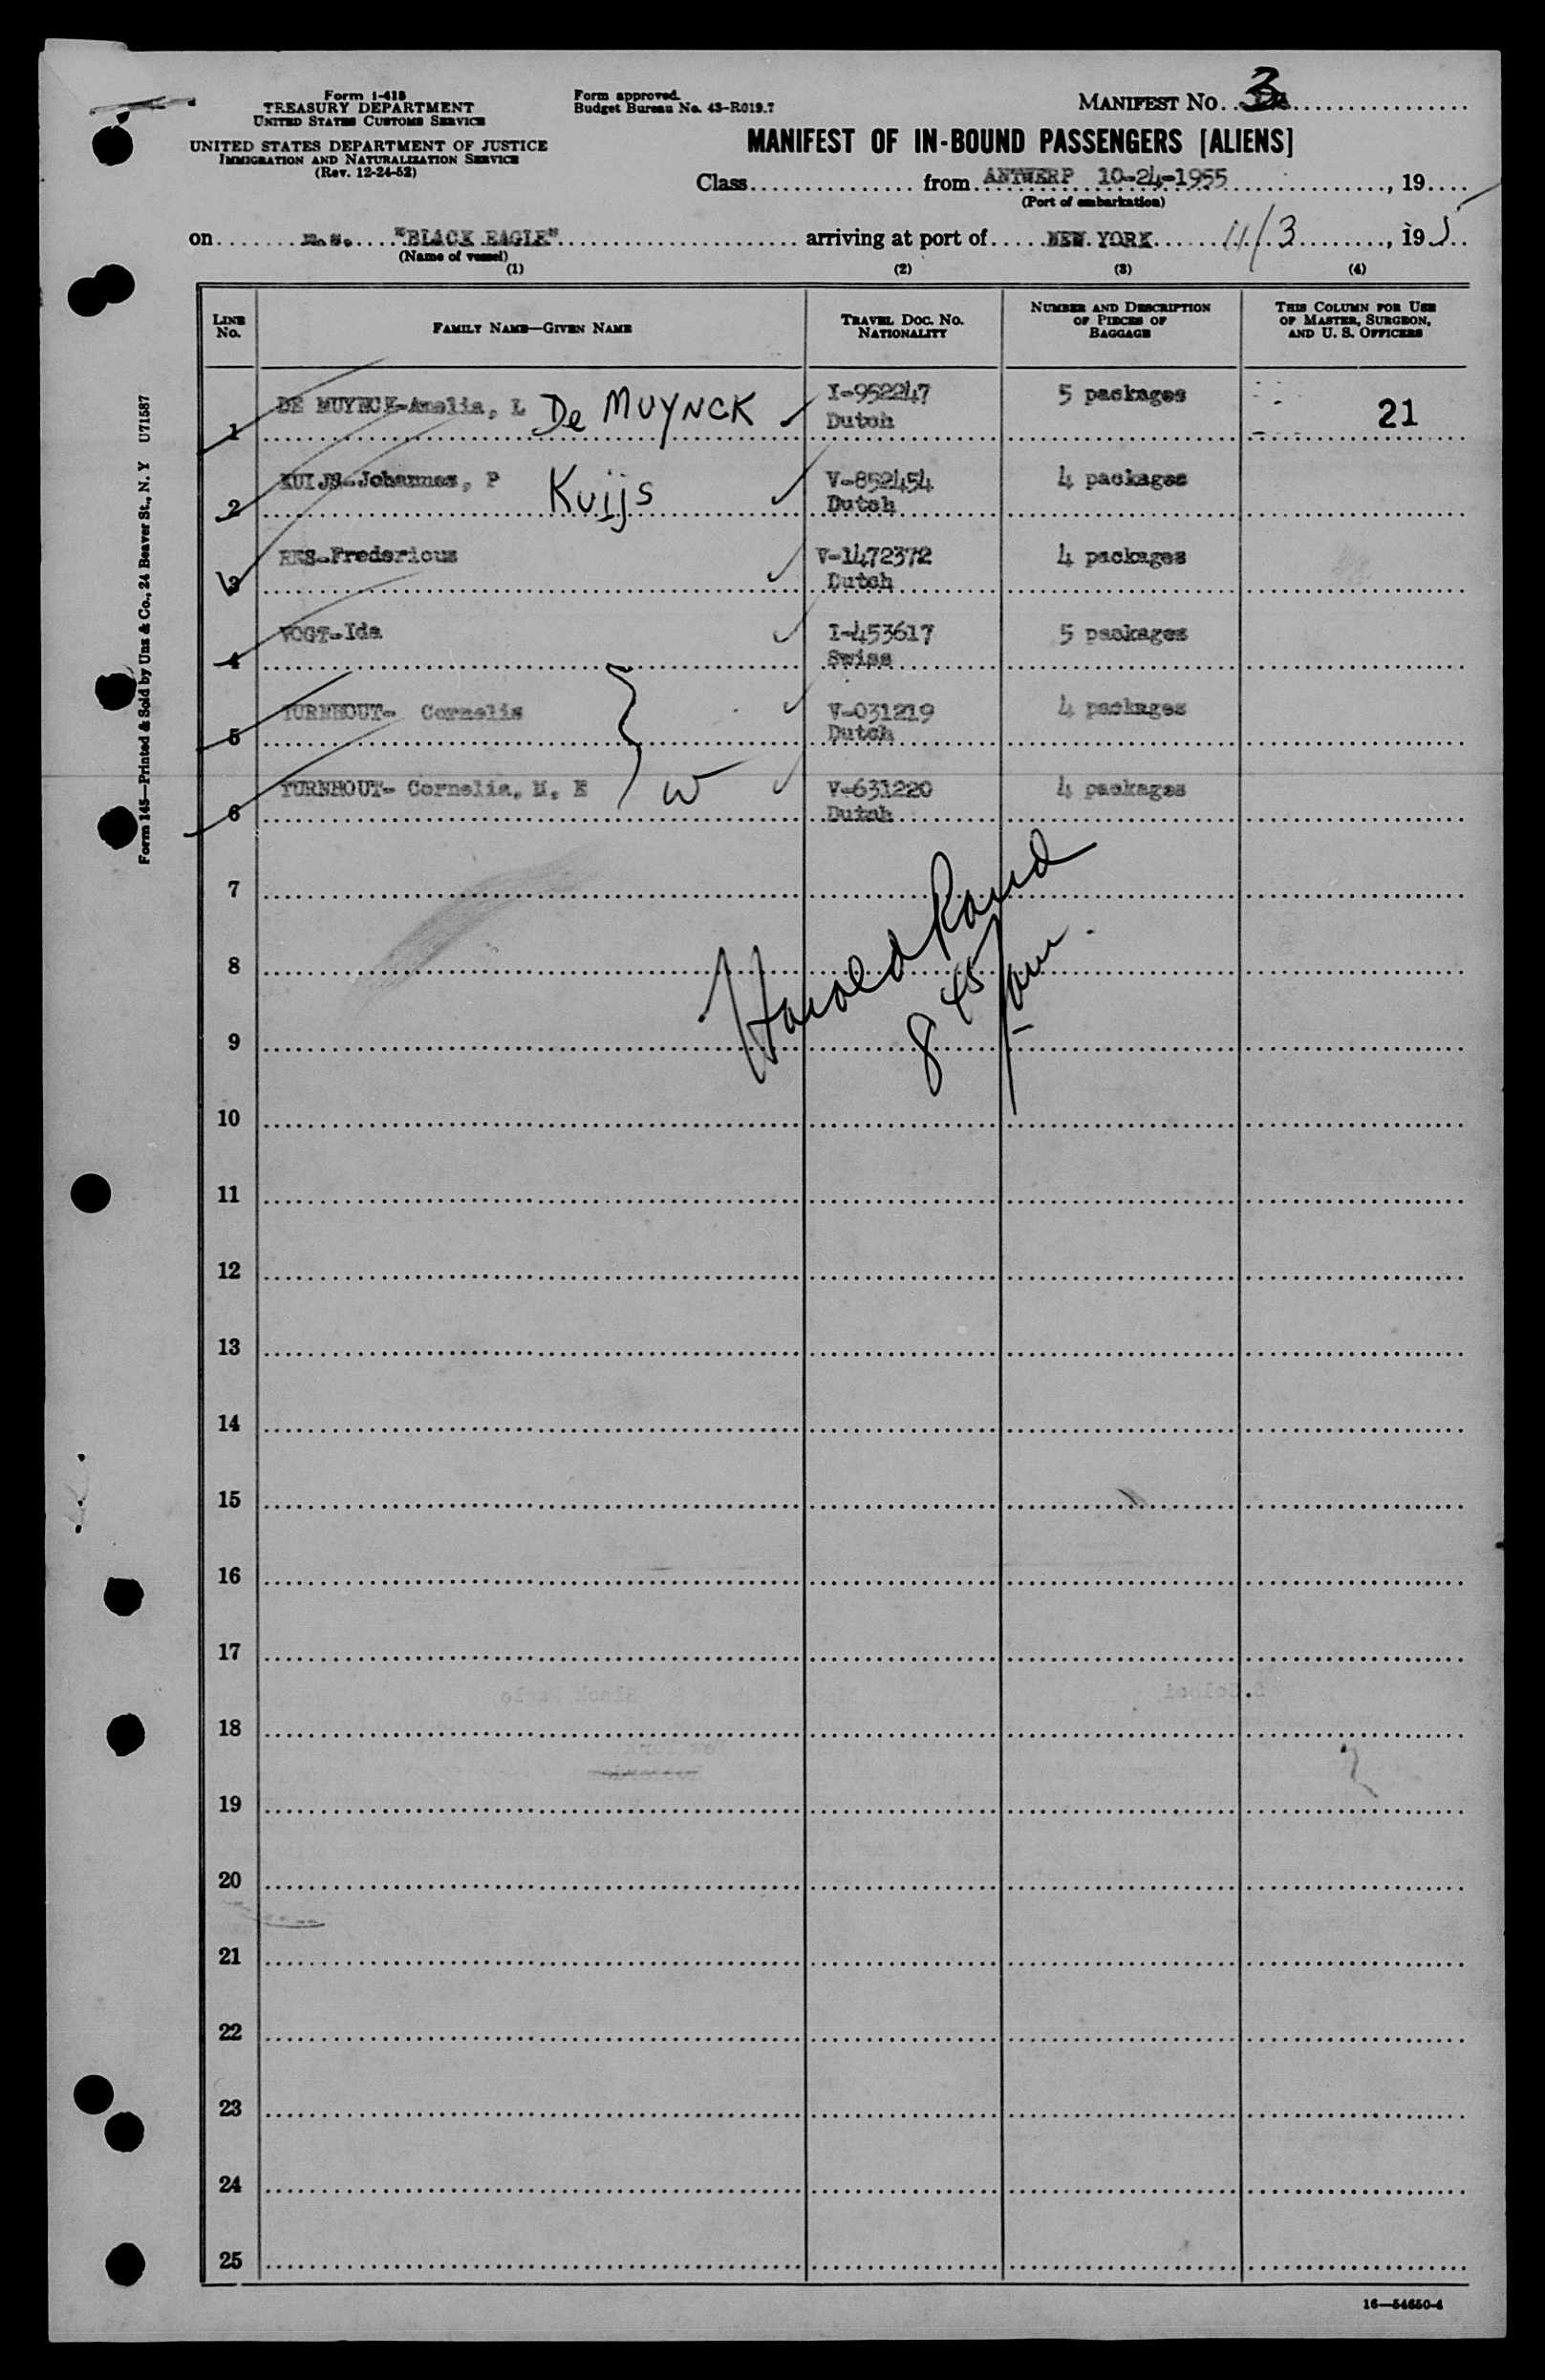 Form I-418
TREASURY DEPARTMENT
UNITED STATES CUSTOMS SERVICE
UNITED STATES DEPARTMENT OF JUSTICE
IMMIGRATION AND NATURALIZATION SERVICE
(Rev. 12-24-52)
Form approved.
Budget Bureau No. 43-R019.7
MANIFEST NO. 3
MANIFEST OF IN-BOUND PASSENGERS [ALIENS]
Class from ANTWERP 10-24-1955, 19
(Port of embarkation)
on m.s. "BLACK EAGLE" arriving at port of NEW YORK 11/3, 195
(Name of vessel)
(1) (2) (3) (4)
LINE NO. FAMILY NAME—GIVEN NAME TRAVEL DOC. NO. NATIONALITY NUMBER AND DESCRIPTION OF PIECES OF BAGGAGE THIS COLUMN FOR USE OF MASTER, SURGEON, AND U. S. OFFICERS
1 DE MUYNCK-Amelia, L De MUYNCK I-952247 5 packages 21
Dutch
2 KUIJS-Johannes, P Kuijs V-852454 4 packages
Dutch
3 -Fredericus V-1472372 4 packages
Dutch
4 VOGT-Ida I-453617 5 packages
Swiss
5 TURNHOUT- Cornelis V-031219 4 packages
Dutch
6 TURNHOUT- Cornelia, M. E W V-631220 4 packages
Dutch
7
Harold Rand
8
8 45/am
9
10
11
12
13
14
15
16
17
18
19
20
21
22
23
24
25
16—54650-4
Form 145—Printed & Sold by Unz & Co., 24 Beaver St., N. Y U71587